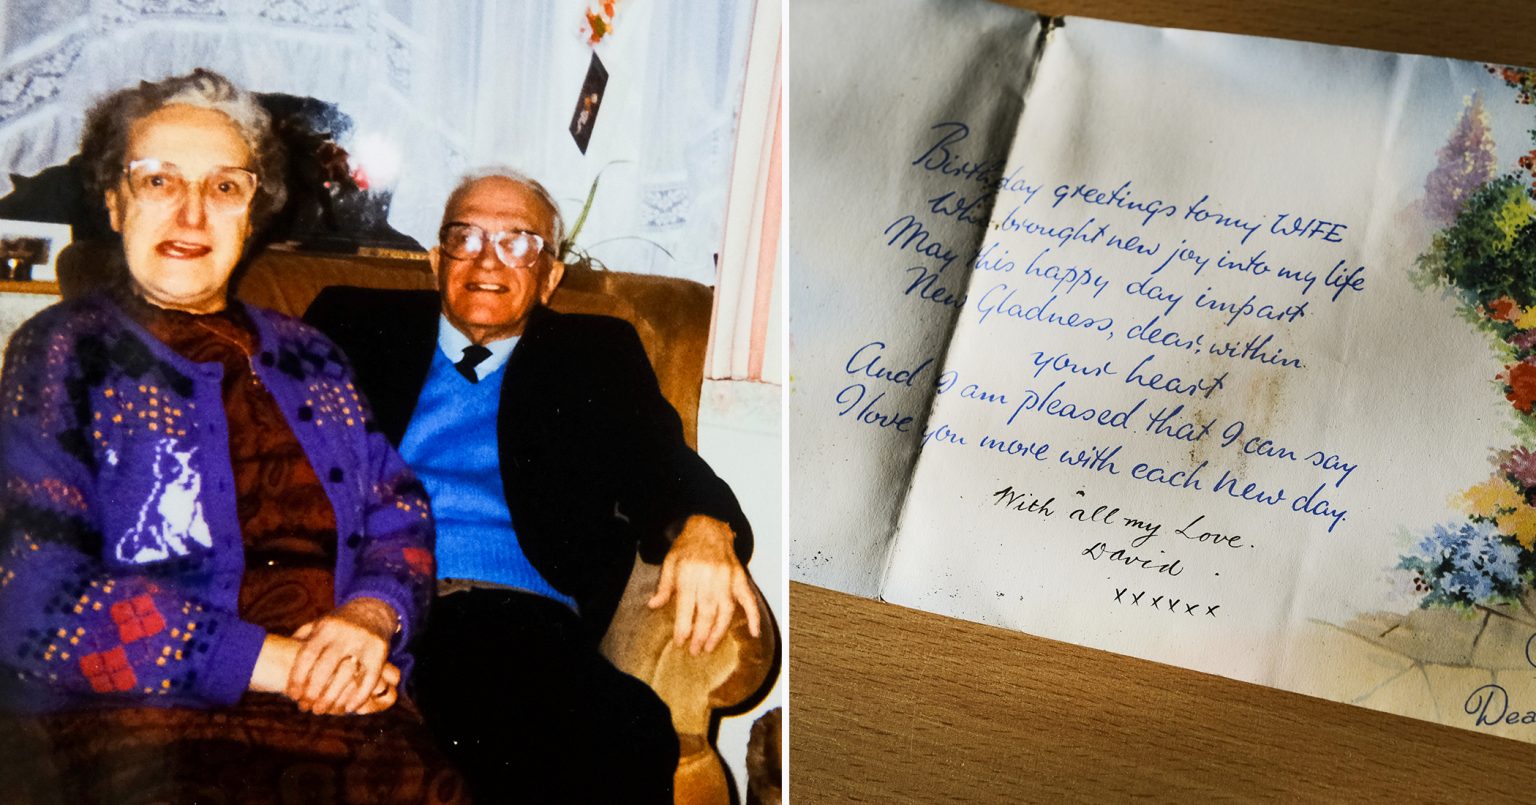 Birthday greetings to my WIFE
Who brought new joy into my life
May this happy day impart
New Gladness, dear, within
your heart
And I am pleased that I can say
I love you more with each new day.
With all my Love.
David.
xxxxxx
Dea